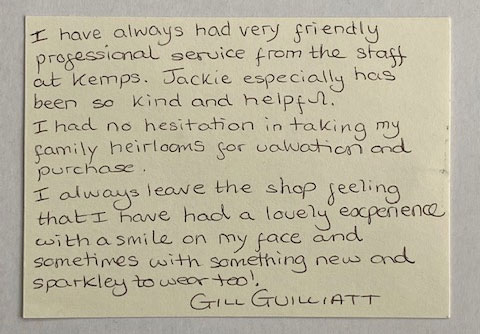 I have always had very friendly
professional service from the staff
at Kemps. Jackie especially has
been so kind and helpful.
I had no hesitation in taking my
family heirlooms for valuation and
purchase.
I always leave the shop feeling
that I have had a lovely experience
with a smile on my face and
sometimes with something new and
sparkley to wear too!.
GILL GUILLIATT